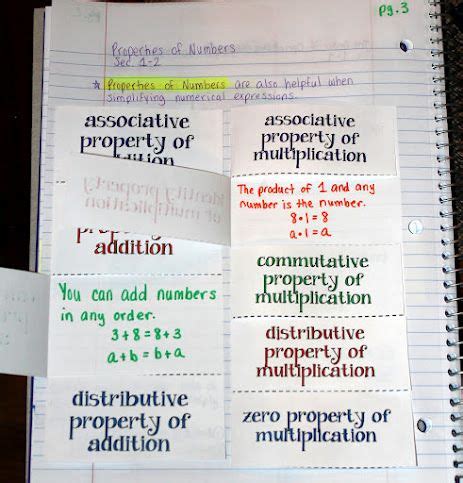 pg. 3
Properties of Numbers
Sec. 1-2
* Properties of Numbers are also helpful when
simplifying numerical expressions.
associative
property of
addition
associative
property of
multiplication
identity property
of multiplication
The product of 1 and any
number is the number.
8•1=8
a•1=a
property of
addition
commutative
property of
multiplication
You can add numbers
in any order.
3+8=8+3
a+b=b+a
distributive
property of
multiplication
distributive
property of
addition
zero property of
multiplication